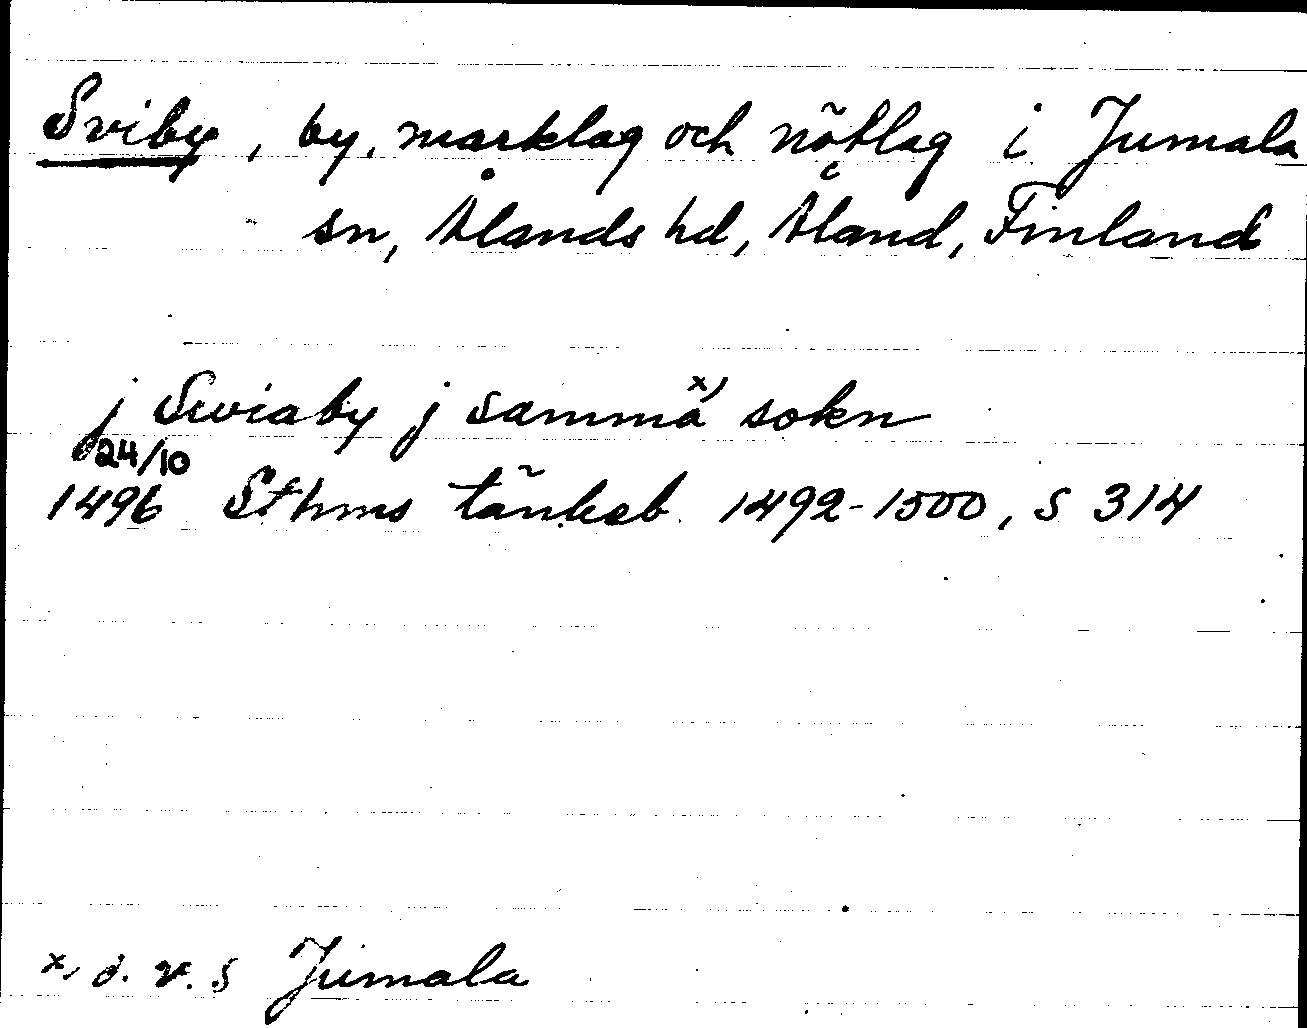 Sviby, by, marklag och nötlag i Jumala
sn, Ålands hd, Åland, Finland
j Swiaby j samma x) sokn
24/10
1496 Sthms tänkeb 1492-1500, s 314
x) d. v. s Jumala